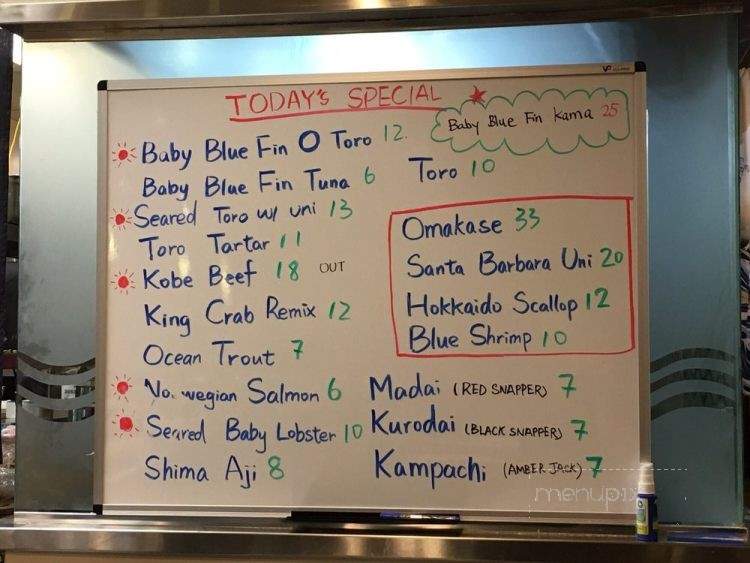 TODAY'S SPECIAL
Baby Blue Fin Kama 25
Baby Blue Fin O Toro 12.
Baby Blue Fin Tuna 6
Toro 10
Seared Toro w/ uni 13
Toro Tartar 11
Kobe Beef 18 OUT
King Crab Remix 12
Ocean Trout 7
No. wegian Salmon 6
Seared Baby Lobster 10
Shima Aji 8
Omakase 33
Santa Barbara Uni 20
Hokkaido Scallop 12
Blue Shrimp 10
Madai (RED SNAPPER) 7
Kurodai (BLACK SNAPPER) 7
Kampachi (AMBER JACK) 7
menupix